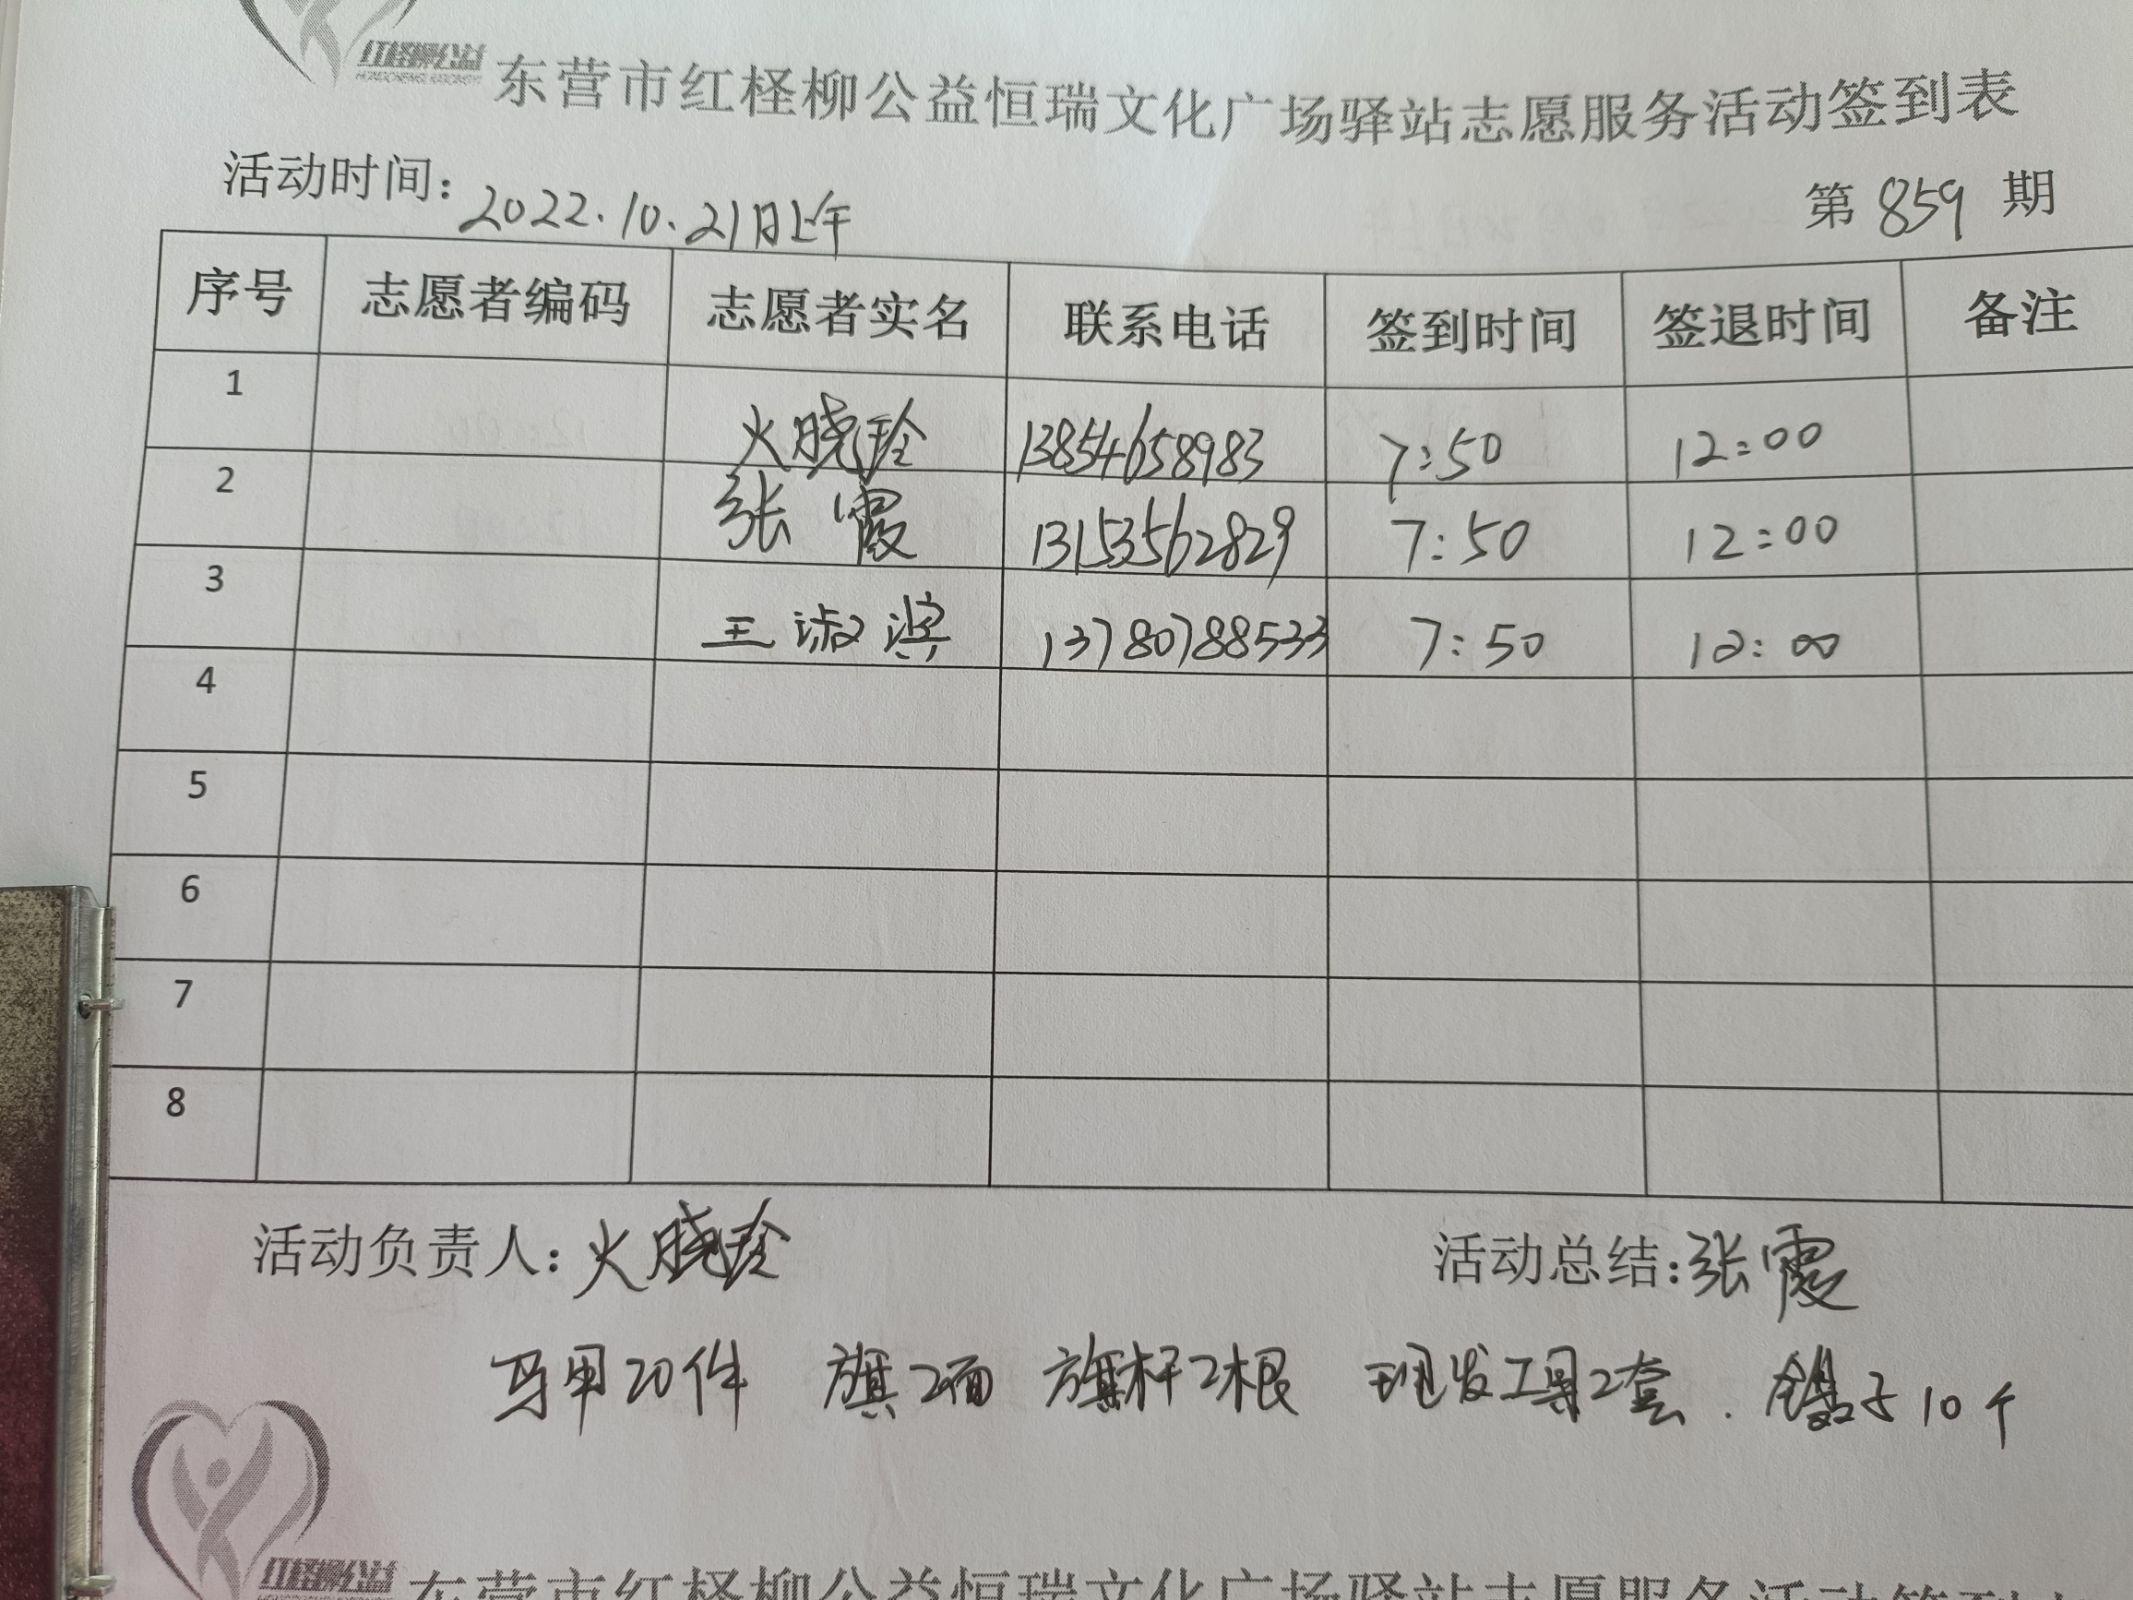 红柽柳公益
东营市红柽柳公益恒瑞文化广场驿站志愿服务活动签到表
活动时间：2022.10.21日上午 第 859 期
序号 志愿者编码 志愿者实名 联系电话 签到时间 签退时间 备注
1 火晓玲 13854658983 7:50 12:00
2 张霞 13153562829 7:50 12:00
3 王淑滨 13780788533 7:50 12:00
4
5
6
7
8
活动负责人：火晓玲 活动总结：张霞
马甲20件 旗2面 旗杆2根 理发工具2套. 子10个
红柽柳公益
东营市红柽柳公益恒瑞文化广场驿站志愿服务活动签到